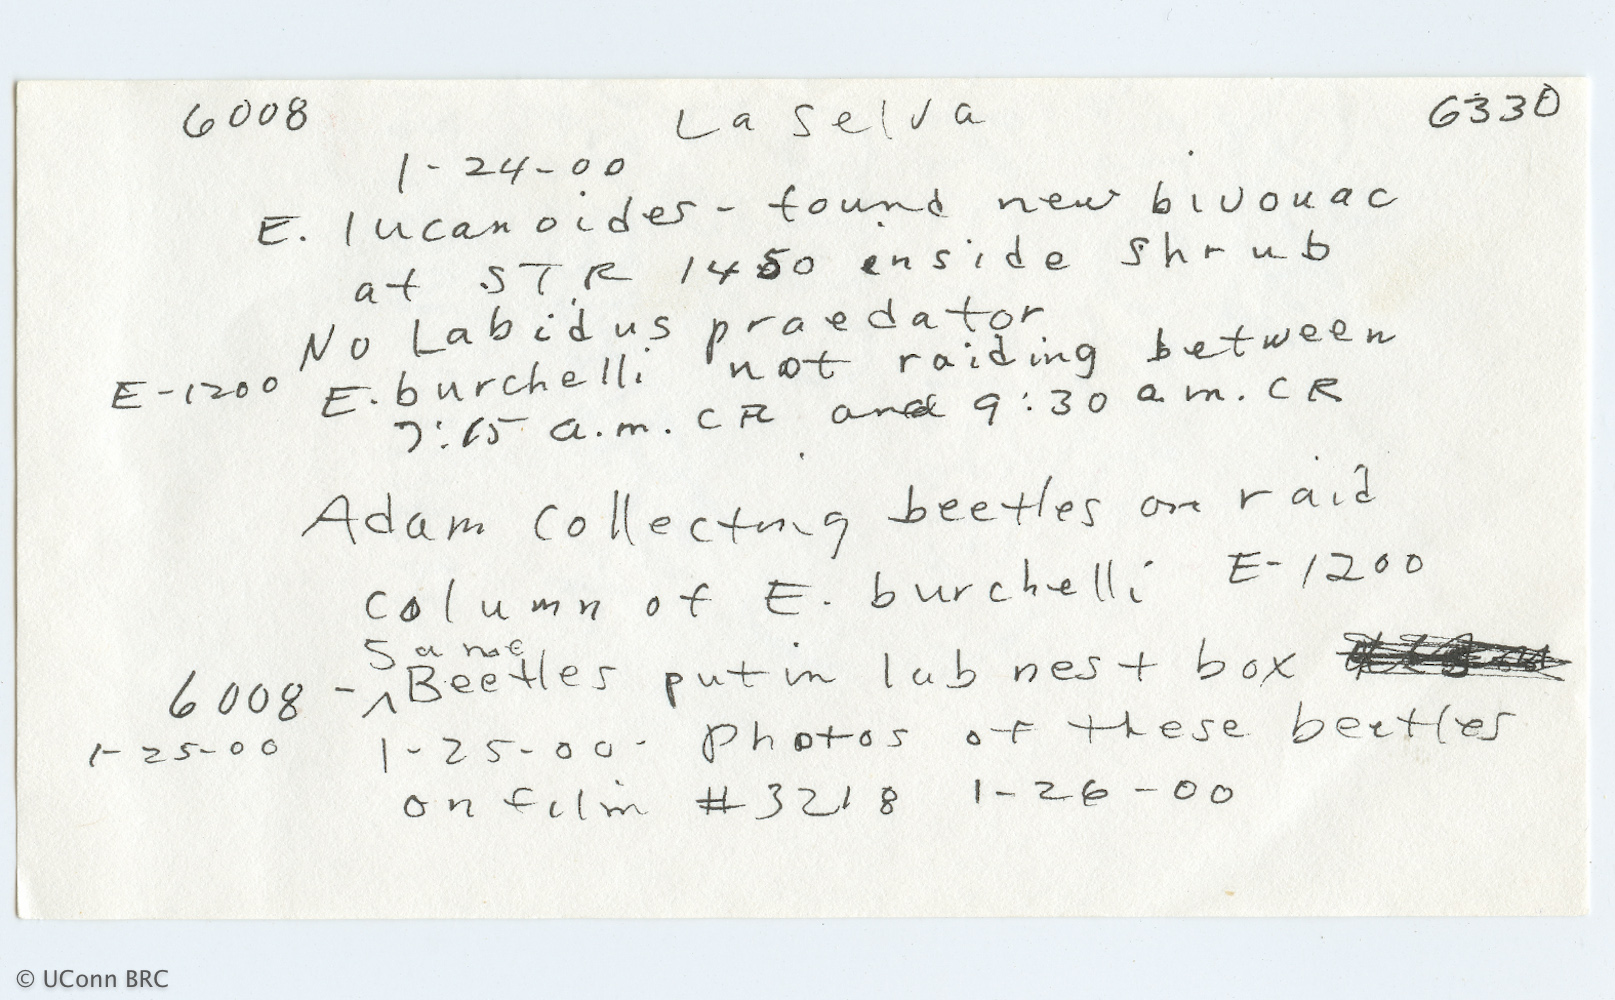 6008 La Selva 6330
1-24-00
E. lucanoides - found new bivouac
at STR 1450 inside shrub
No Labidus praedator
E-1200 E. burchelli not raiding between
7:15 a.m. CR and 9:30 a.m. CR
Adam collecting beetles on raid
column of E. burchelli E-1200
Same
6008 - ^Beetles put in lab nest box
1-25-00 1-25-00- photos of these beetles
on film #3218 1-26-00
© UConn BRC